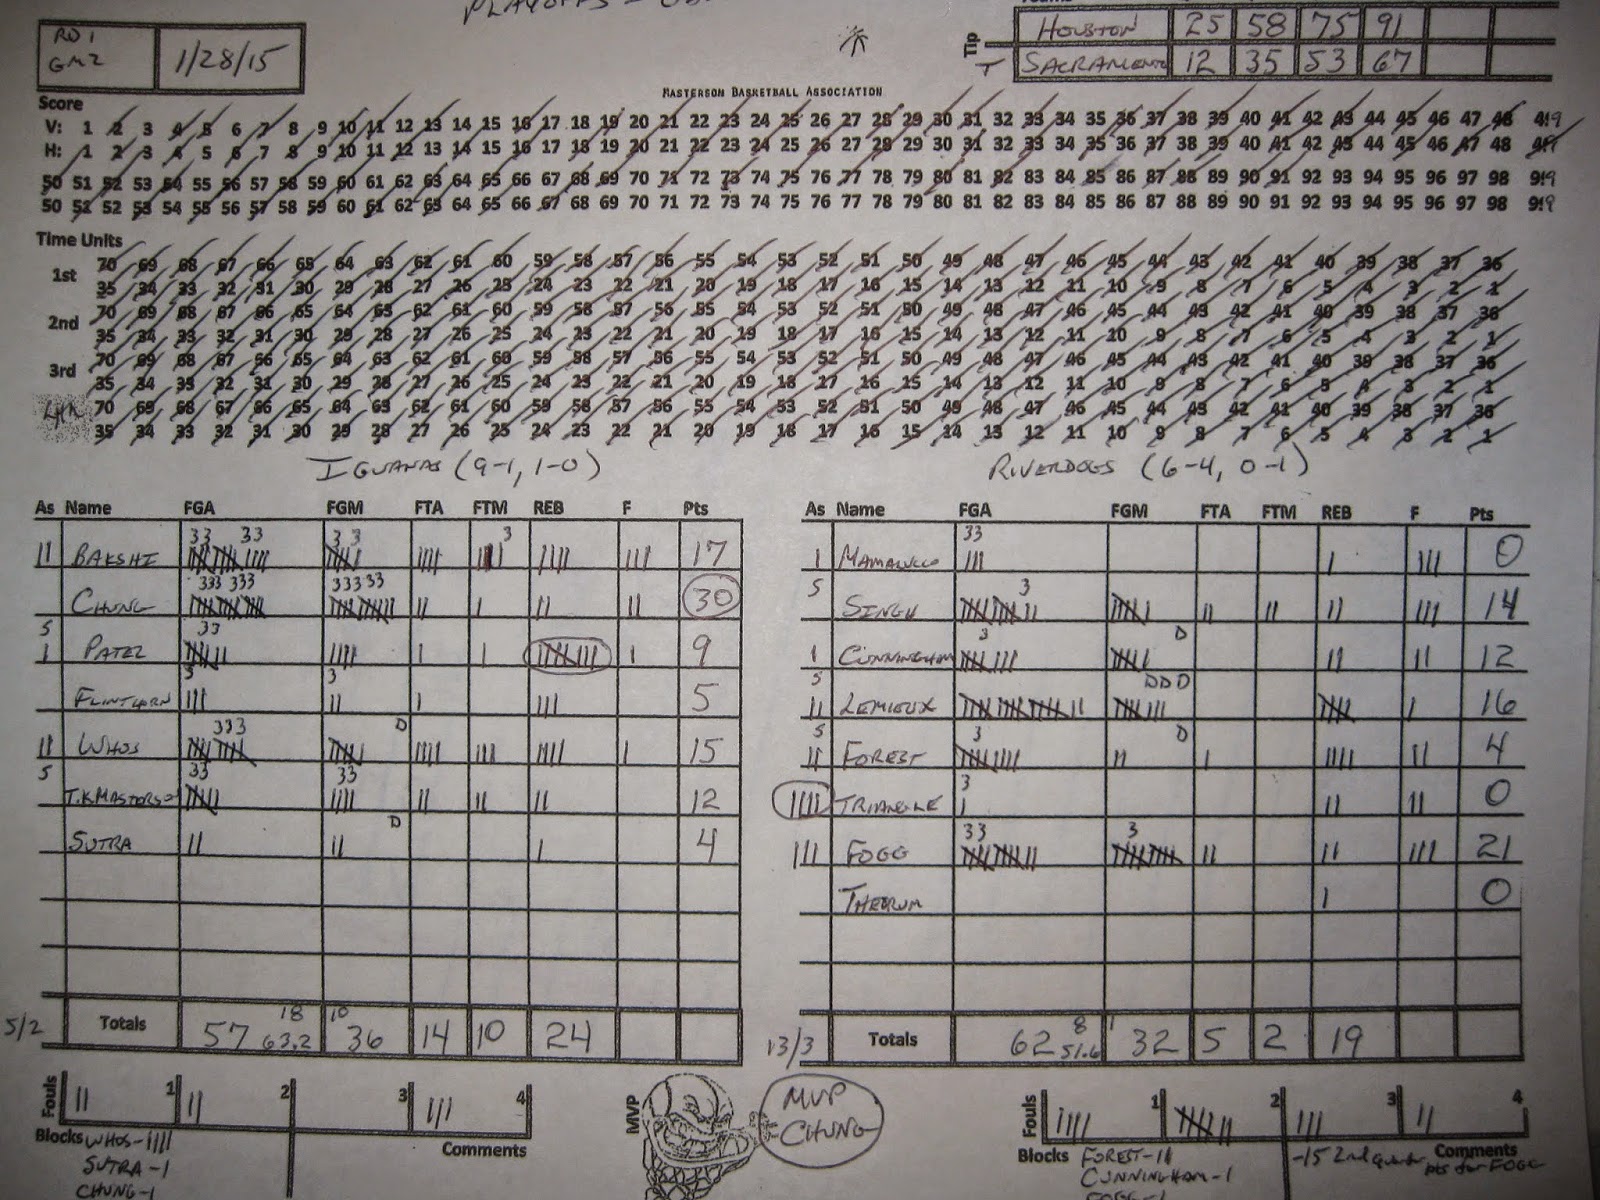 PLAYOFFS -
RD 1
GM2
1/28/15
Teams
Tip
HOUSTON 25 58 75 91
T SACRAMENTO 12 35 53 67
MASTERSON BASKETBALL ASSOCIATION
Score
V: 1 2 3 4 5 6 7 8 9 10 11 12 13 14 15 16 17 18 19 20 21 22 23 24 25 26 27 28 29 30 31 32 33 34 35 36 37 38 39 40 41 42 43 44 45 46 47 48 49
H: 1 2 3 4 5 6 7 8 9 10 11 12 13 14 15 16 17 18 19 20 21 22 23 24 25 26 27 28 29 30 31 32 33 34 35 36 37 38 39 40 41 42 43 44 45 46 47 48 49
50 51 52 53 54 55 56 57 58 59 60 61 62 63 64 65 66 67 68 69 70 71 72 73 74 75 76 77 78 79 80 81 82 83 84 85 86 87 88 89 90 91 92 93 94 95 96 97 98 99
50 51 52 53 54 55 56 57 58 59 60 61 62 63 64 65 66 67 68 69 70 71 72 73 74 75 76 77 78 79 80 81 82 83 84 85 86 87 88 89 90 91 92 93 94 95 96 97 98 99
Time Units
1st 70 69 68 67 66 65 64 63 62 61 60 59 58 57 56 55 54 53 52 51 50 49 48 47 46 45 44 43 42 41 40 39 38 37 36
35 34 33 32 31 30 29 28 27 26 25 24 23 22 21 20 19 18 17 16 15 14 13 12 11 10 9 8 7 6 5 4 3 2 1
2nd 70 69 68 67 66 65 64 63 62 61 60 59 58 57 56 55 54 53 52 51 50 49 48 47 46 45 44 43 42 41 40 39 38 37 36
35 34 33 32 31 30 29 28 27 26 25 24 23 22 21 20 19 18 17 16 15 14 13 12 11 10 9 8 7 6 5 4 3 2 1
3rd 70 69 68 67 66 65 64 63 62 61 60 59 58 57 56 55 54 53 52 51 50 49 48 47 46 45 44 43 42 41 40 39 38 37 36
35 34 33 32 31 30 29 28 27 26 25 24 23 22 21 20 19 18 17 16 15 14 13 12 11 10 9 8 7 6 5 4 3 2 1
4th 70 69 68 67 66 65 64 63 62 61 60 59 58 57 56 55 54 53 52 51 50 49 48 47 46 45 44 43 42 41 40 39 38 37 36
35 34 33 32 31 30 29 28 27 26 25 24 23 22 21 20 19 18 17 16 15 14 13 12 11 10 9 8 7 6 5 4 3 2 1
IGUANAS (9-1, 1-0)
As Name FGA FGM FTA FTM REB F Pts
33 33 3 3 3
BAKSHI 17
333 333 333 33
CHUNG 30
S 33
PATEL 9
3 3
FLINTHORN 5
333 D
WHOS 15
S 33 33
T.K MASTERSON 12
D
SUTRA 4
5/2 Totals 57 18 63.2 10 36 14 10 24
RIVERDOGS (6-4, 0-1)
As Name FGA FGM FTA FTM REB F Pts
33
MAMALUCCO 0
S 3
SINGH 14
3 D
CUNNINGHAM 12
S DDD
LEMIEUX 16
S 3 D
FOREST 4
3
TRIANGLE 0
33 3
FOGG 21
THEORUM 0
13/3 Totals 62 8 51.6 1 32 5 2 19
Fouls 1 2 3 4
Blocks WHOS-IIII
SUTRA-1
CHUNG-1
Comments
MVP
MVP
CHUNG
Fouls 1 2 3 4
Blocks FOREST-II
CUNNINGHAM-1
FOGG-1
Comments
-15 2nd Quarter
pts for FOGG